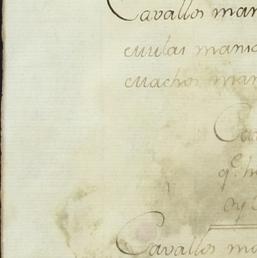 Cavallos man
mulas mans
machos man
Ca
q.e h
oy
Cavallos ma